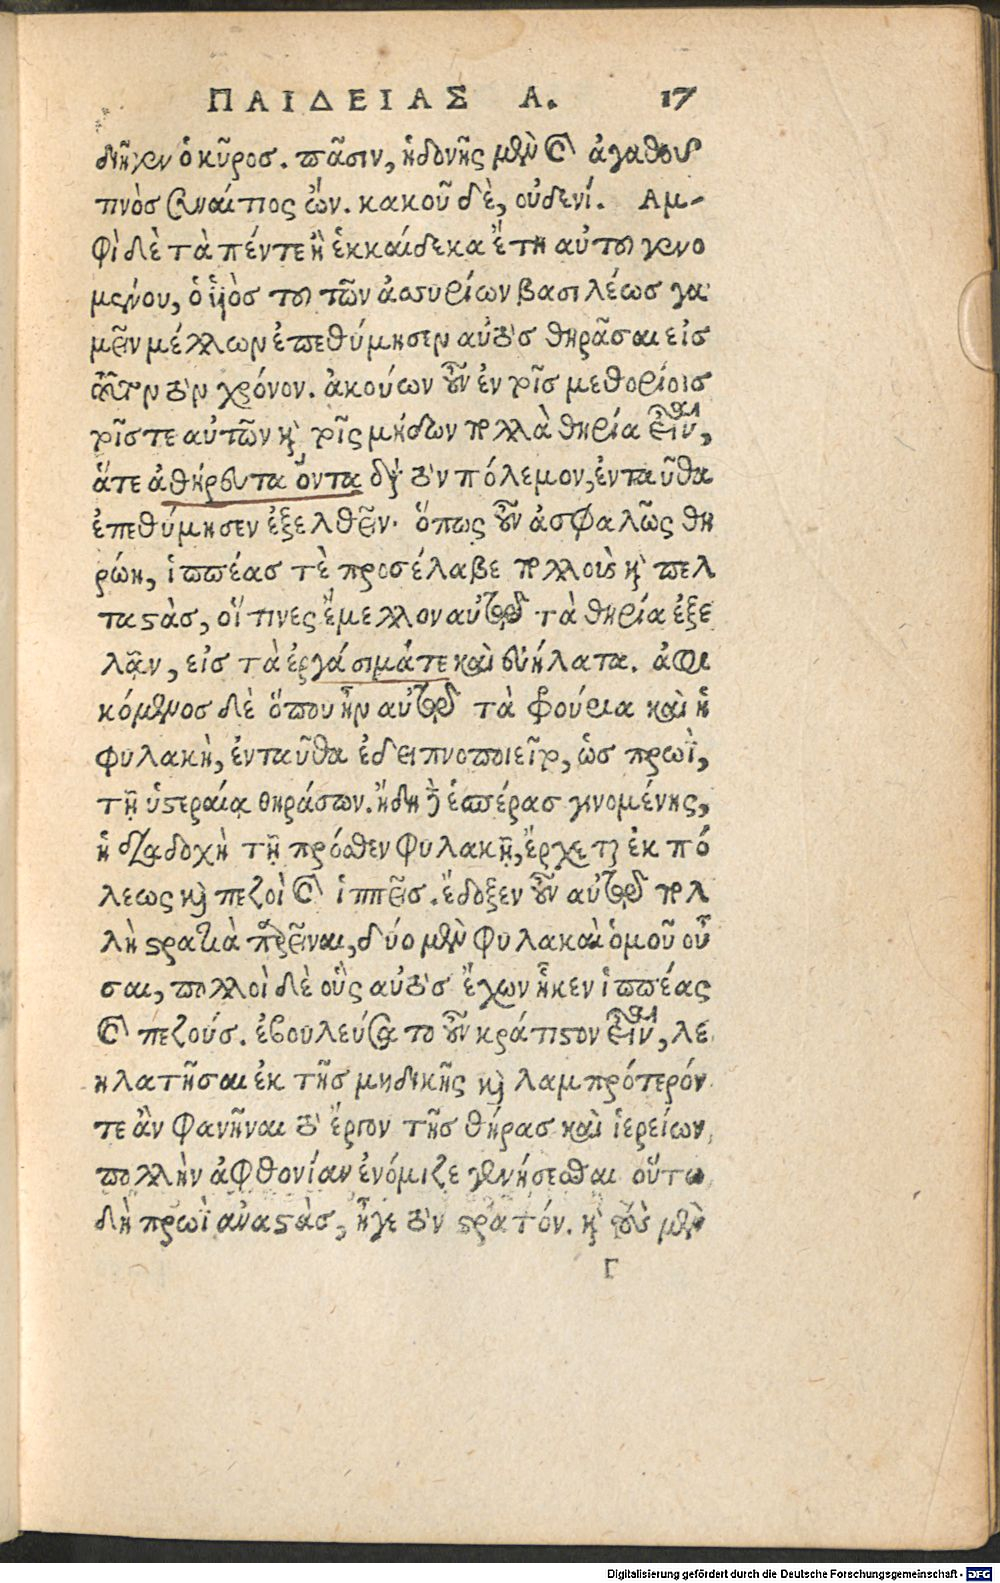 ΠΑΙΔΕΙΑΣ Α. 17
διῆγεν ὁ κῦρος. πᾶσιν, ἡδονῆς μὲν καὶ ἀγαθοῦ
τινὸς συναίτιος ὤν. κακοῦ δὲ, οὐδενί. Αμ-
φὶ δὲ τὰ πέντε ἢ ἑκκαίδεκα ἔτη αὐτοῦ γενο
μένου, ὁ ὑιὸς τοῦ τῶν ἀσσυρίων βασιλέως γα
μεῖν μέλλων ἐπεθύμησεν αὐτὸς θηρᾶσαι εἰς
τοῦτον τὸν χρόνον. ἀκούων οὖν ἐν τοῖς μεθορίοις
τοῖς τε αὐτῶν καὶ τοῖς μήδων πολλὰ θηρία εἶναι,
ἅτε ἀθήρευτα ὄντα διὰ τὸν πόλεμον, ἐνταῦθα
ἐπεθύμησεν ἐξελθεῖν. ὅπως οὖν ἀσφαλῶς θη
ρώη, ἱππέας τὲ προσέλαβε πολλοὺς καὶ πελ
ταστὰς, οἵ τινες ἔμελλον αὐτῷ τὰ θηρία ἐξε
λᾶν, εἰς τὰ ἐργάσιμά τε καὶ εὐήλατα. ἀφι
κόμενος δὲ ὅπου ἦν αὐτῷ τὰ φρούρια καὶ ἡ
φυλακὴ, ἐνταῦθα ἐδειπνοποιεῖτο, ὡς πρωῒ,
τῇ ὑστεραίᾳ θηράσων. ἤδη δὲ ἑσπέρας γινομένης,
ἡ διαδοχὴ τῇ πρόσθεν φυλακῇ, ἔρχεται ἐκ πό
λεως καὶ πεζοὶ καὶ ἱππεῖς. ἔδοξεν οὖν αὐτῷ πολ
λὴ στρατιὰ παρεῖναι, δύο μὲν φυλακαὶ ὁμοῦ οὖ
σαι, πολλοὶ δὲ οὓς αὐτὸς ἔχων ἧκεν ἱππέας
καὶ πεζούς. ἐβουλεύσατο οὖν κράτιστον εἶναι, λε
ηλατῆσαι ἐκ τῆς μηδικῆς καὶ λαμπρότερόν
τε ἂν φανῆναι τὸ ἔργον τῆς θήρας καὶ ἱερείων
πολλὴν ἀφθονίαν ἐνόμιζε γενήσεσθαι οὕτω
δὴ πρωῒ ἀναστὰς, ἦγε τὸν στρατόν. καὶ τοὺς μὲν
Γ
Digitalisierung gefördert durch die Deutsche Forschungsgemeinschaft - DFG